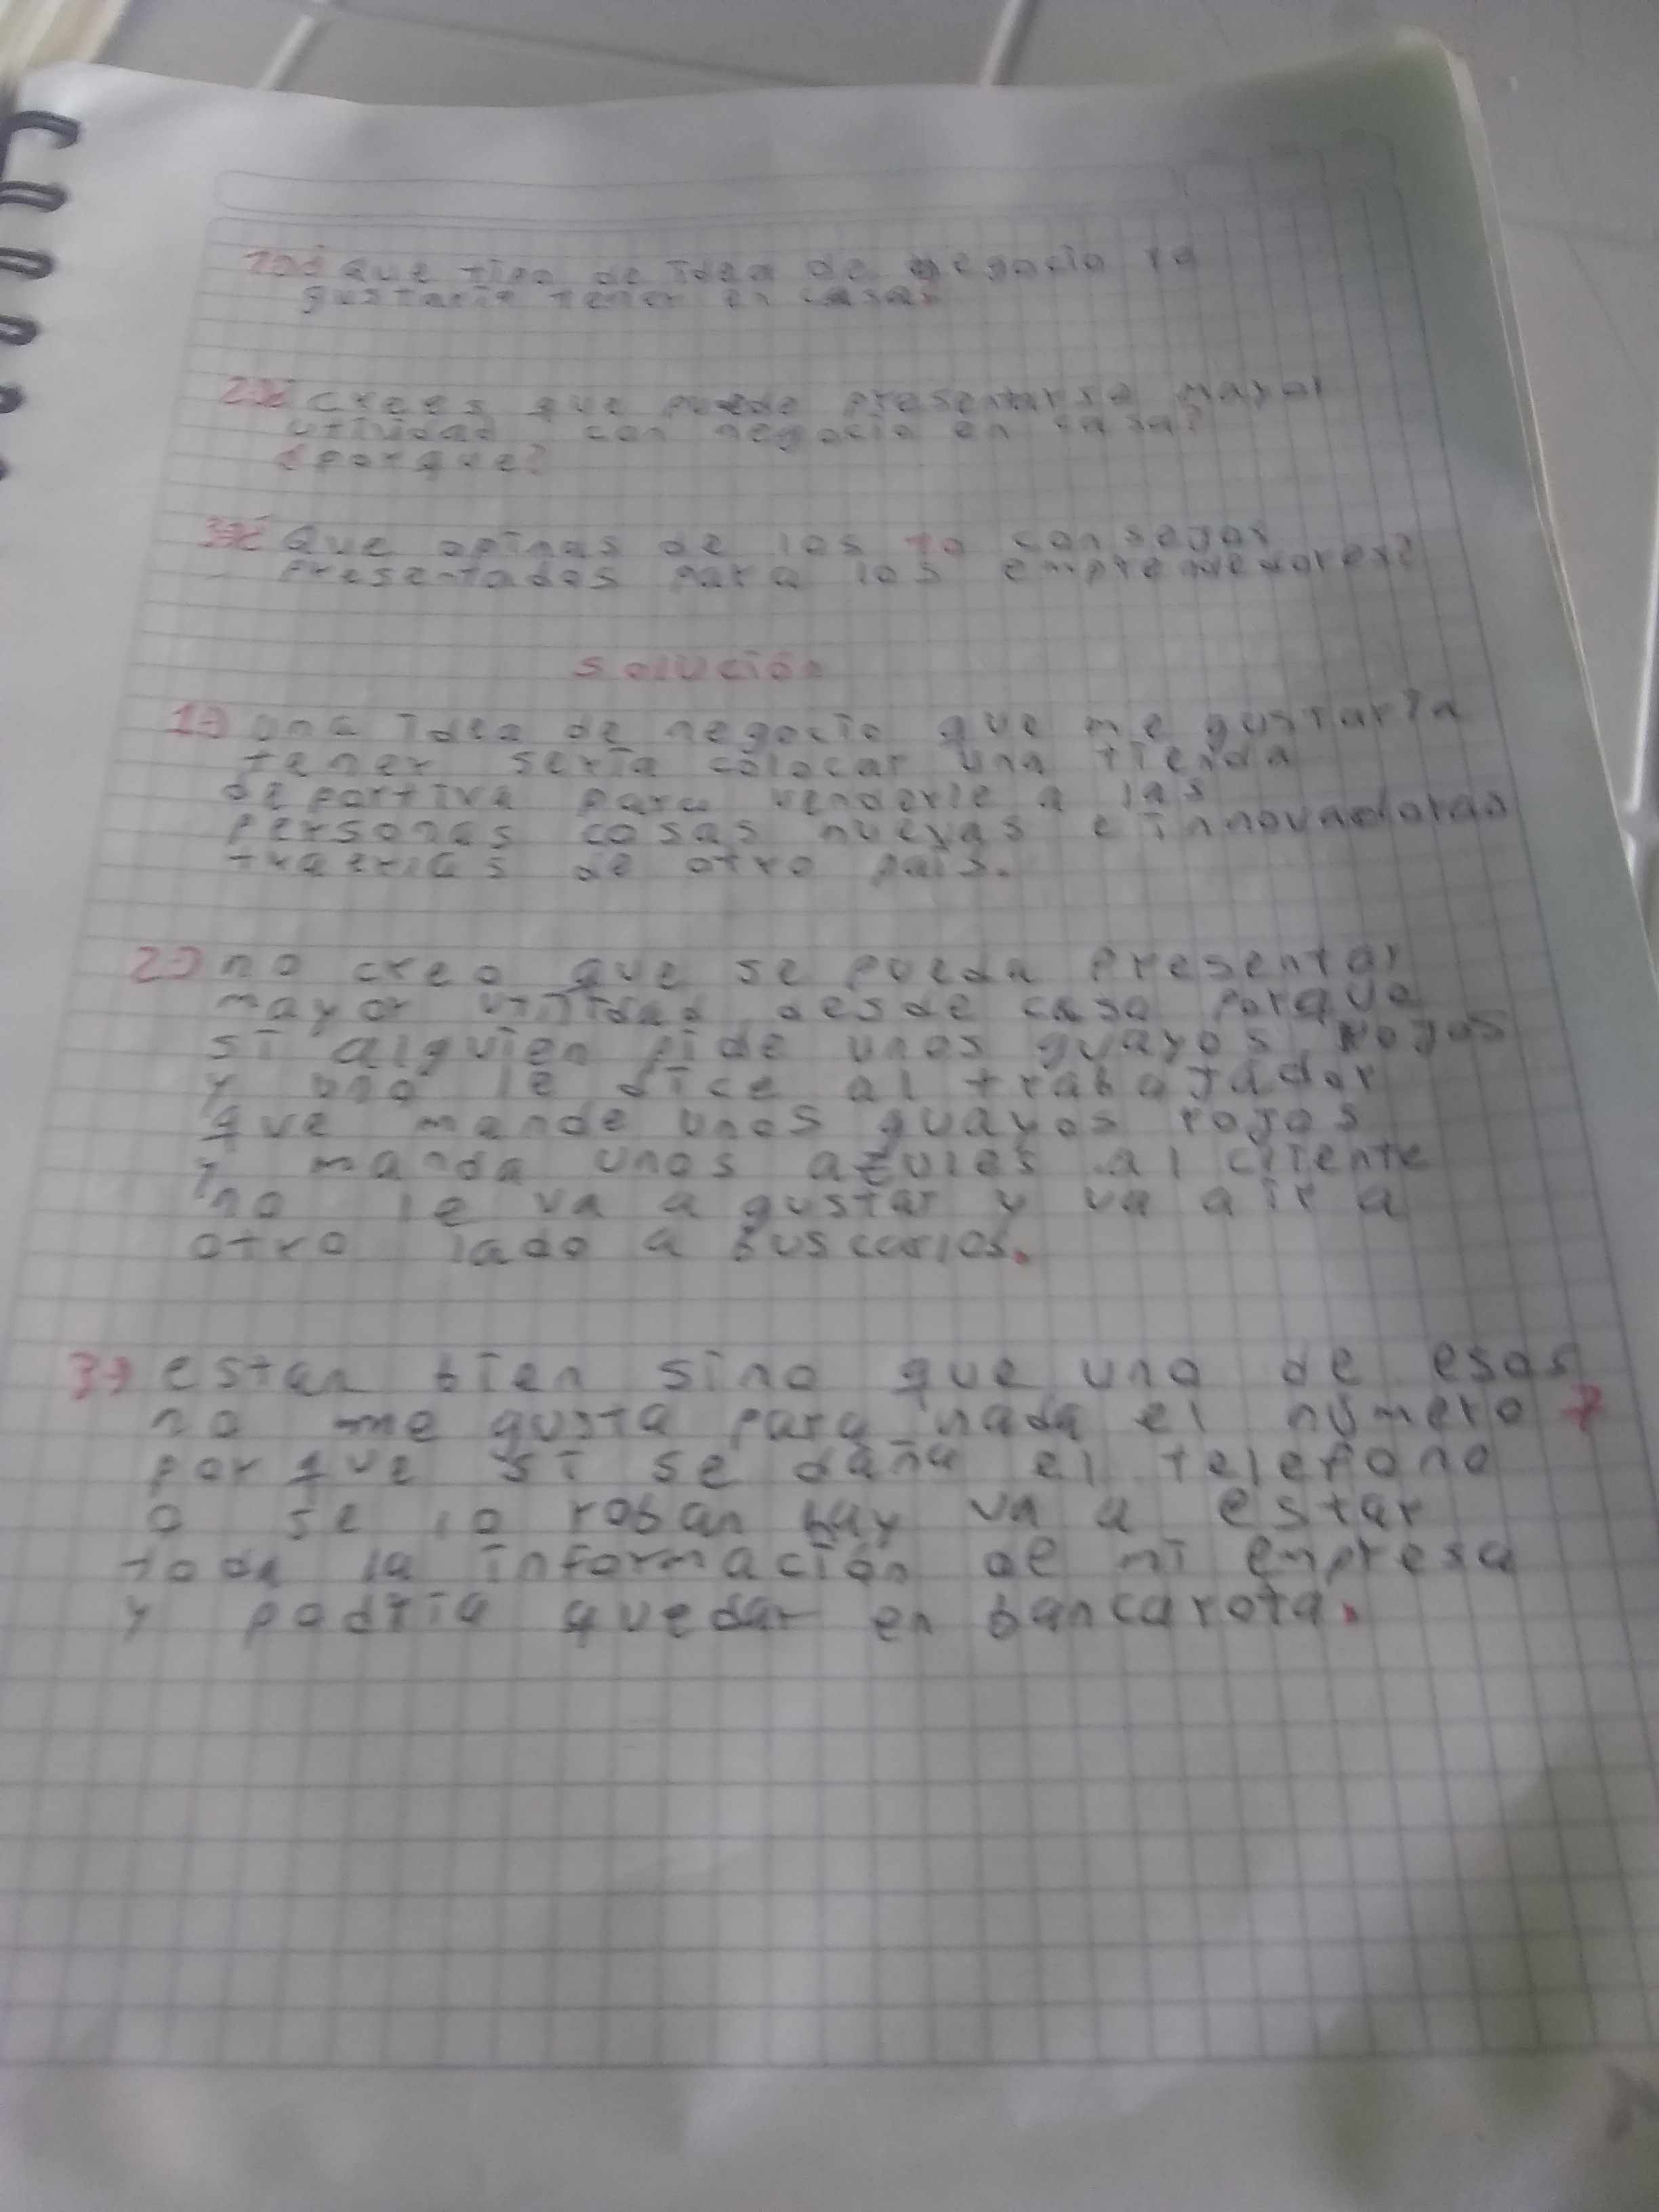 1.¿ Que tipo de idea de negocio te
gustaria tener en casa?
2.¿ Crees que puede presentarse mayor
utilidad con negocio en casa?
¿porque?
3.¿ Que opinas de los 10 consejos
presentados para los emprendedores?
solución
1.) una idea de negocio que me gustaria
tener seria colocar una tienda
deportiva para venderle a las
personas cosas nuevas e innovadoras
traerlas de otro pais.
2.) no creo que se pueda presentar
mayor utilidad desde casa porque
si alguien pide unos guayos rojos
y uno le dice al trabajador
que mande unos guayos rojos
y manda unos azules al cliente
no le va a gustar y va a ir a
otro lado a buscarlos.
3.) estan bien sino que uno de esos
no me gusta para nada el número 7
porque si se daña el telefono
o se lo roban hay va a estar
toda la información de mi empresa
y podria quedar en bancarota.